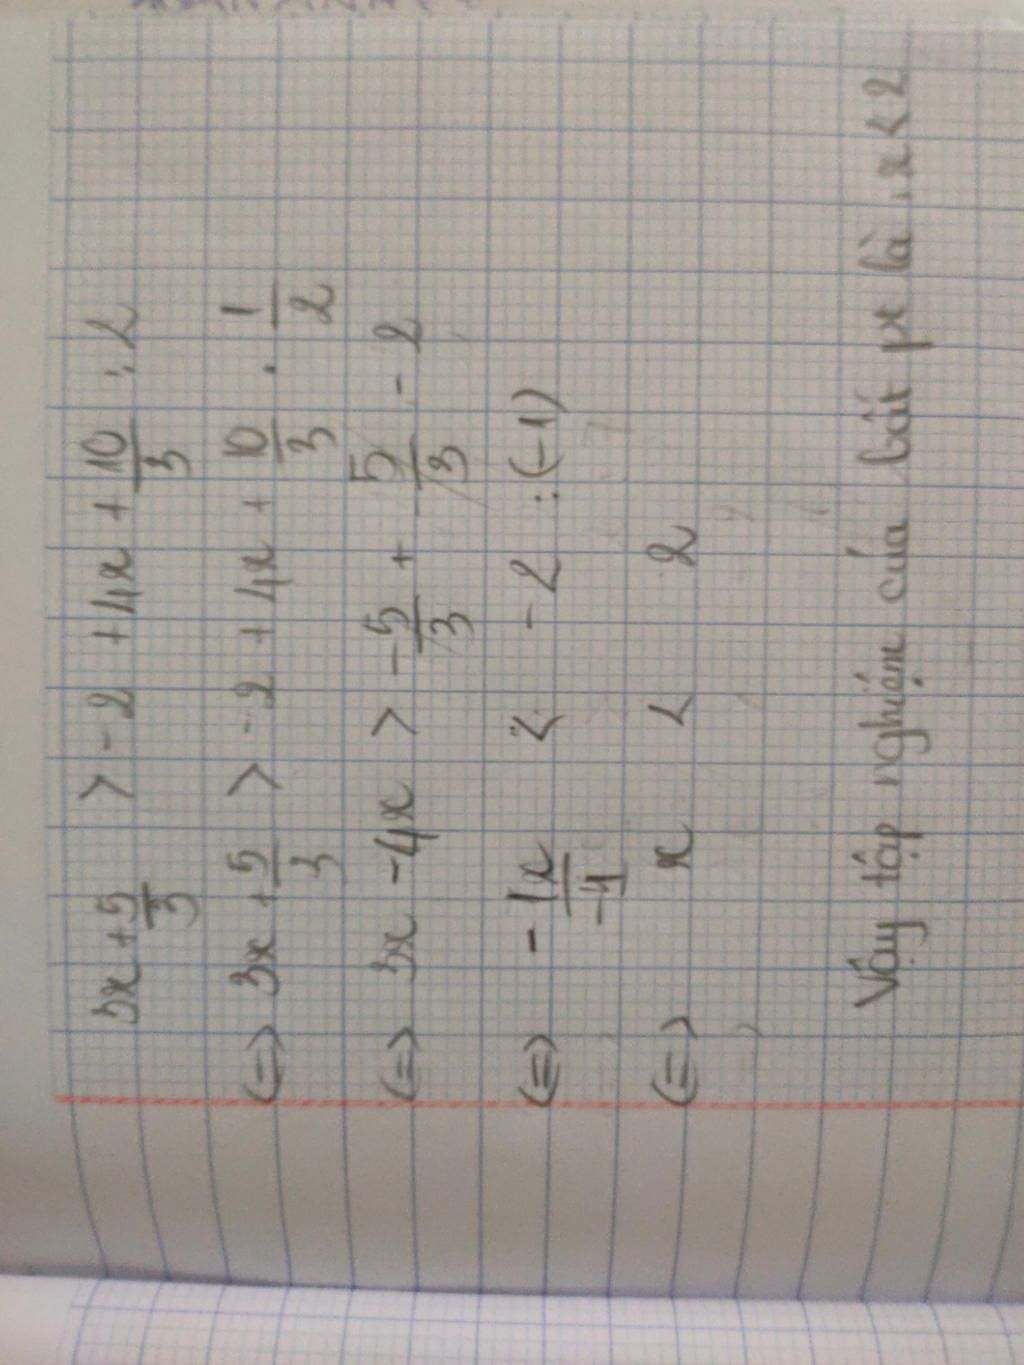 3x + 5/3 > -2 + 4x + 10/3 : 2
(=) 3x + 5/3 > -2 + 4x + 10/3 . 1/2
(=) 3x - 4x > -5/3 + 5/3 - 2
(=) -1x/-1 < -2 : (-1)
(=) x < 2
Vậy tập nghiệm của bất pt là , x < 2